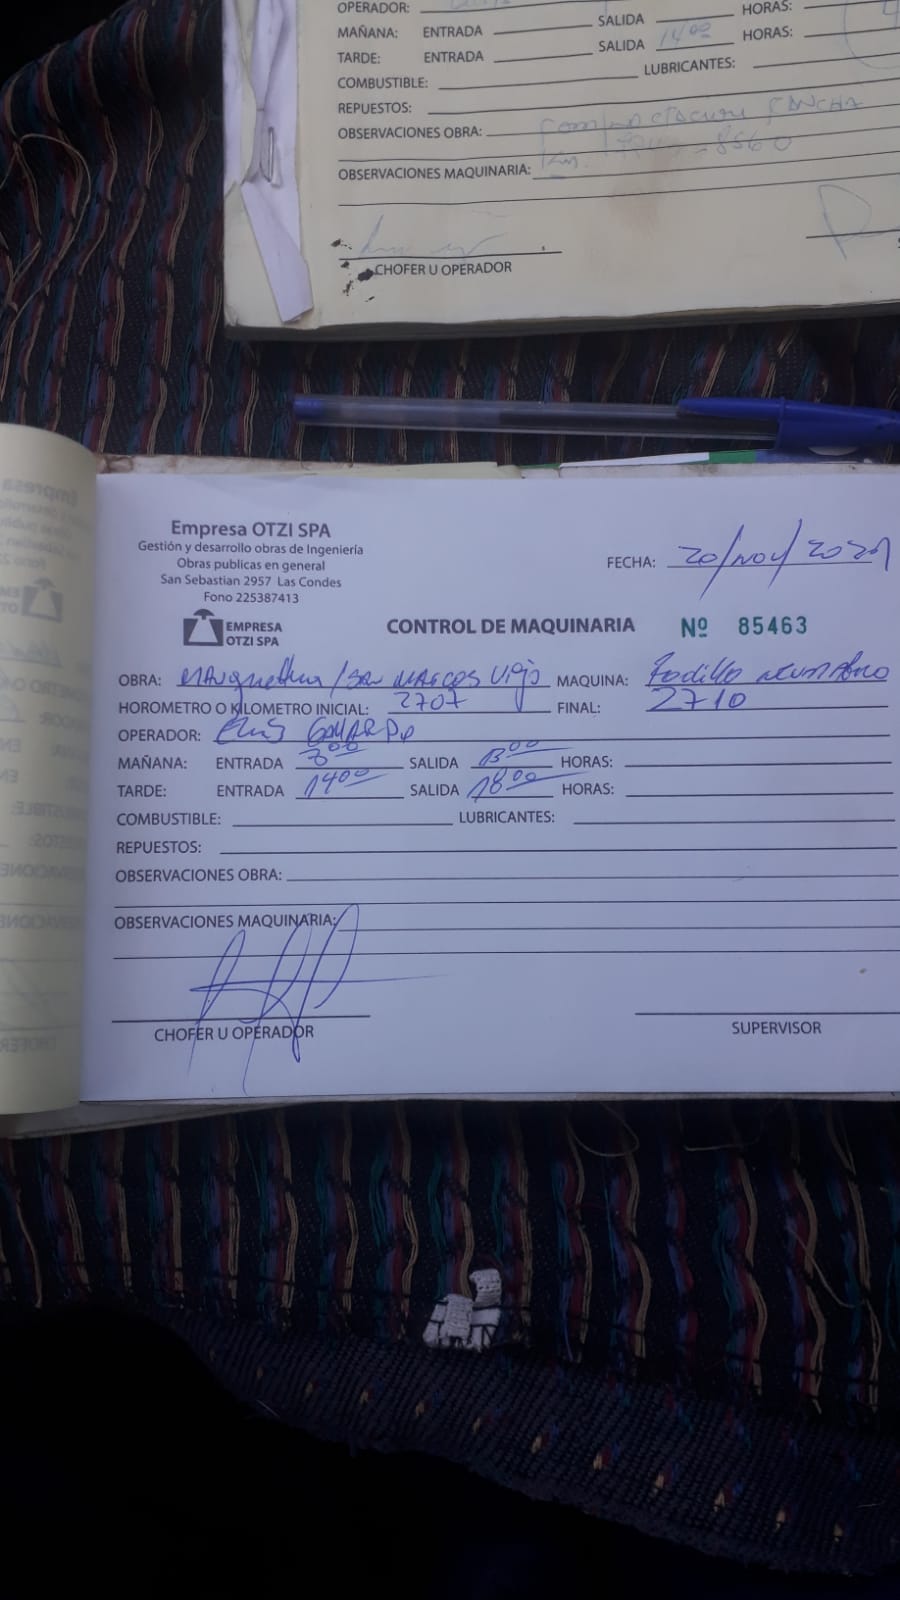 OPERADOR:
MAÑANA: ENTRADA SALIDA HORAS:
TARDE: ENTRADA SALIDA 14⁰⁰ HORAS:
COMBUSTIBLE: LUBRICANTES:
REPUESTOS:
OBSERVACIONES OBRA: CANCHA
Km. 8560
OBSERVACIONES MAQUINARIA:
CHOFER U OPERADOR
Empresa OTZI SPA
Gestión y desarrollo obras de Ingeniería
Obras publicas en general
San Sebastian 2957 Las Condes
Fono 225387413
FECHA: 20/Nov/
EMPRESA
OTZI SPA
CONTROL DE MAQUINARIA Nº 85463
OBRA: /SAN MARCOS Viejo MAQUINA: Rodillo neumatico
HOROMETRO O KILOMETRO INICIAL: 2707 FINAL: 2710
OPERADOR:
MAÑANA: ENTRADA 8⁰⁰ SALIDA 13⁰⁰ HORAS:
TARDE: ENTRADA 14⁰⁰ SALIDA 18⁰⁰ HORAS:
COMBUSTIBLE: LUBRICANTES:
REPUESTOS:
OBSERVACIONES OBRA:
OBSERVACIONES MAQUINARIA:
CHOFER U OPERADOR SUPERVISOR